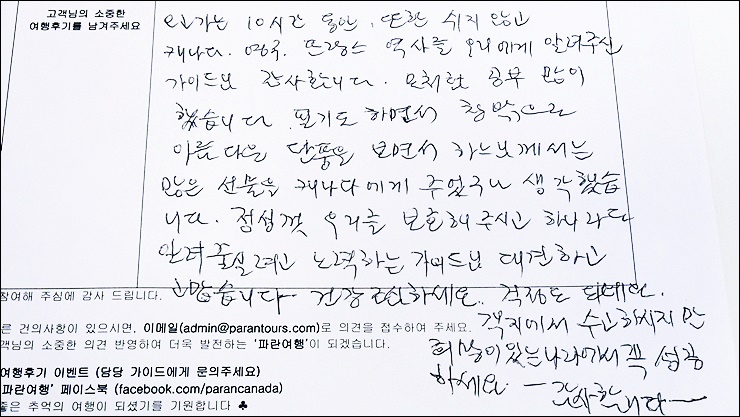 고객님의 소중한
여행후기를 남겨주세요
오가는 10시간 동안, 또한 쉬지 않고
캐나다. 영국. 프랑스 역사를 우리에게 알려주신
가이드님 감사합니다. 모처럼 공부 많이
했습니다 필기도 하면서 창밖으로
아름다운 단풍을 보면서 하느님께서는
많은 선물을 캐나다에게 주었구나 생각했습
니다. 정성껏 우리를 보호해 주시고 하나라도
알려 주실려고 노력하는 가이드님 대견하고
고맙습니다. 건강 조심하세요. 걱정도 되네요.
객지에서 수고하시지만
희망이 있는 나라에서 꼭 성공
하세요 — 감사합니다 —
참여해 주심에 감사 드립니다.
른 건의사항이 있으시면, 이메일(admin@parantours.com)로 의견을 접수하여 주세요.
객님의 소중한 의견 반영하여 더욱 발전하는 '파란여행'이 되겠습니다.
여행후기 이벤트 (담당 가이드에게 문의주세요)
'파란여행' 페이스북 (facebook.com/parancanada)
좋은 추억의 여행이 되셨기를 기원합니다 ♣